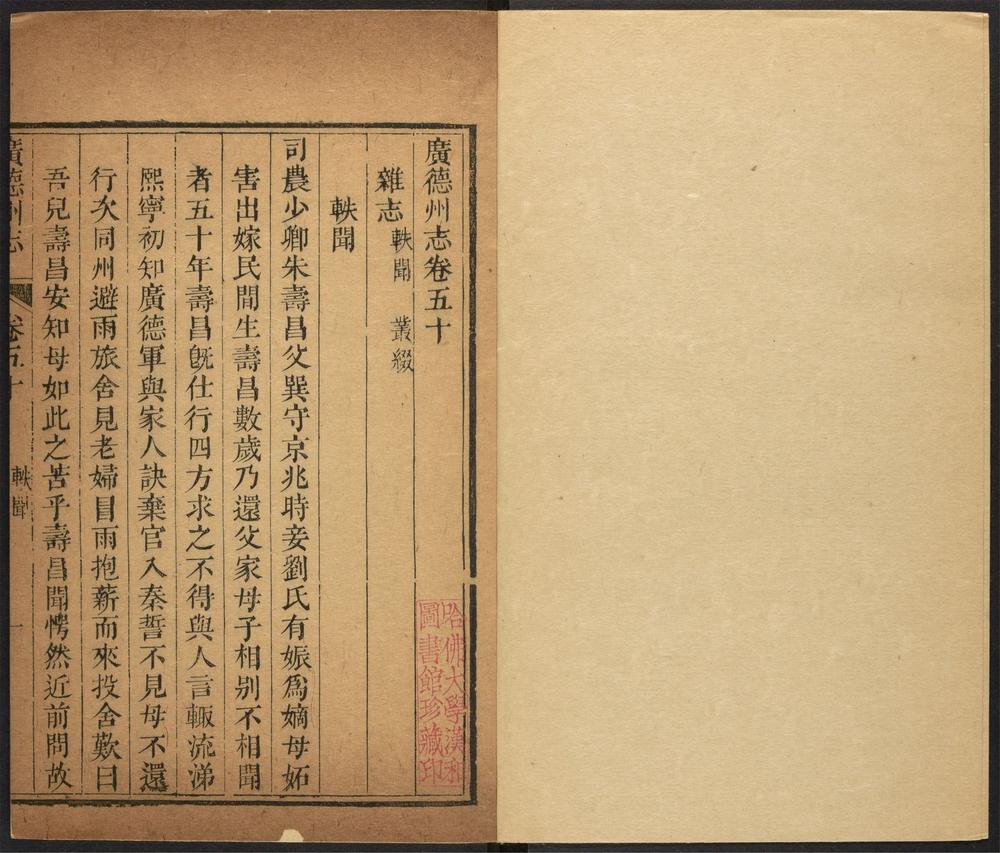 廣德州志卷五十
雜志 軼聞 叢綴
軼聞
司農少卿朱壽昌父巽守京兆時妾劉氏有娠爲嫡母妬
害出嫁民間生壽昌數歲乃還父家母子相別不相聞
者五十年壽昌旣仕行四方求之不得與人言輙流涕
熙寧初知廣德軍與家人訣棄官入秦誓不見母不還
行次同州避雨旅舍見老婦冒雨抱薪而來投舍歎曰
吾兒壽昌安知母如此之苦乎壽昌聞愕然近前問故
廣德州志 卷五十 軼聞 一
哈佛大學漢和
圖書館珍藏印